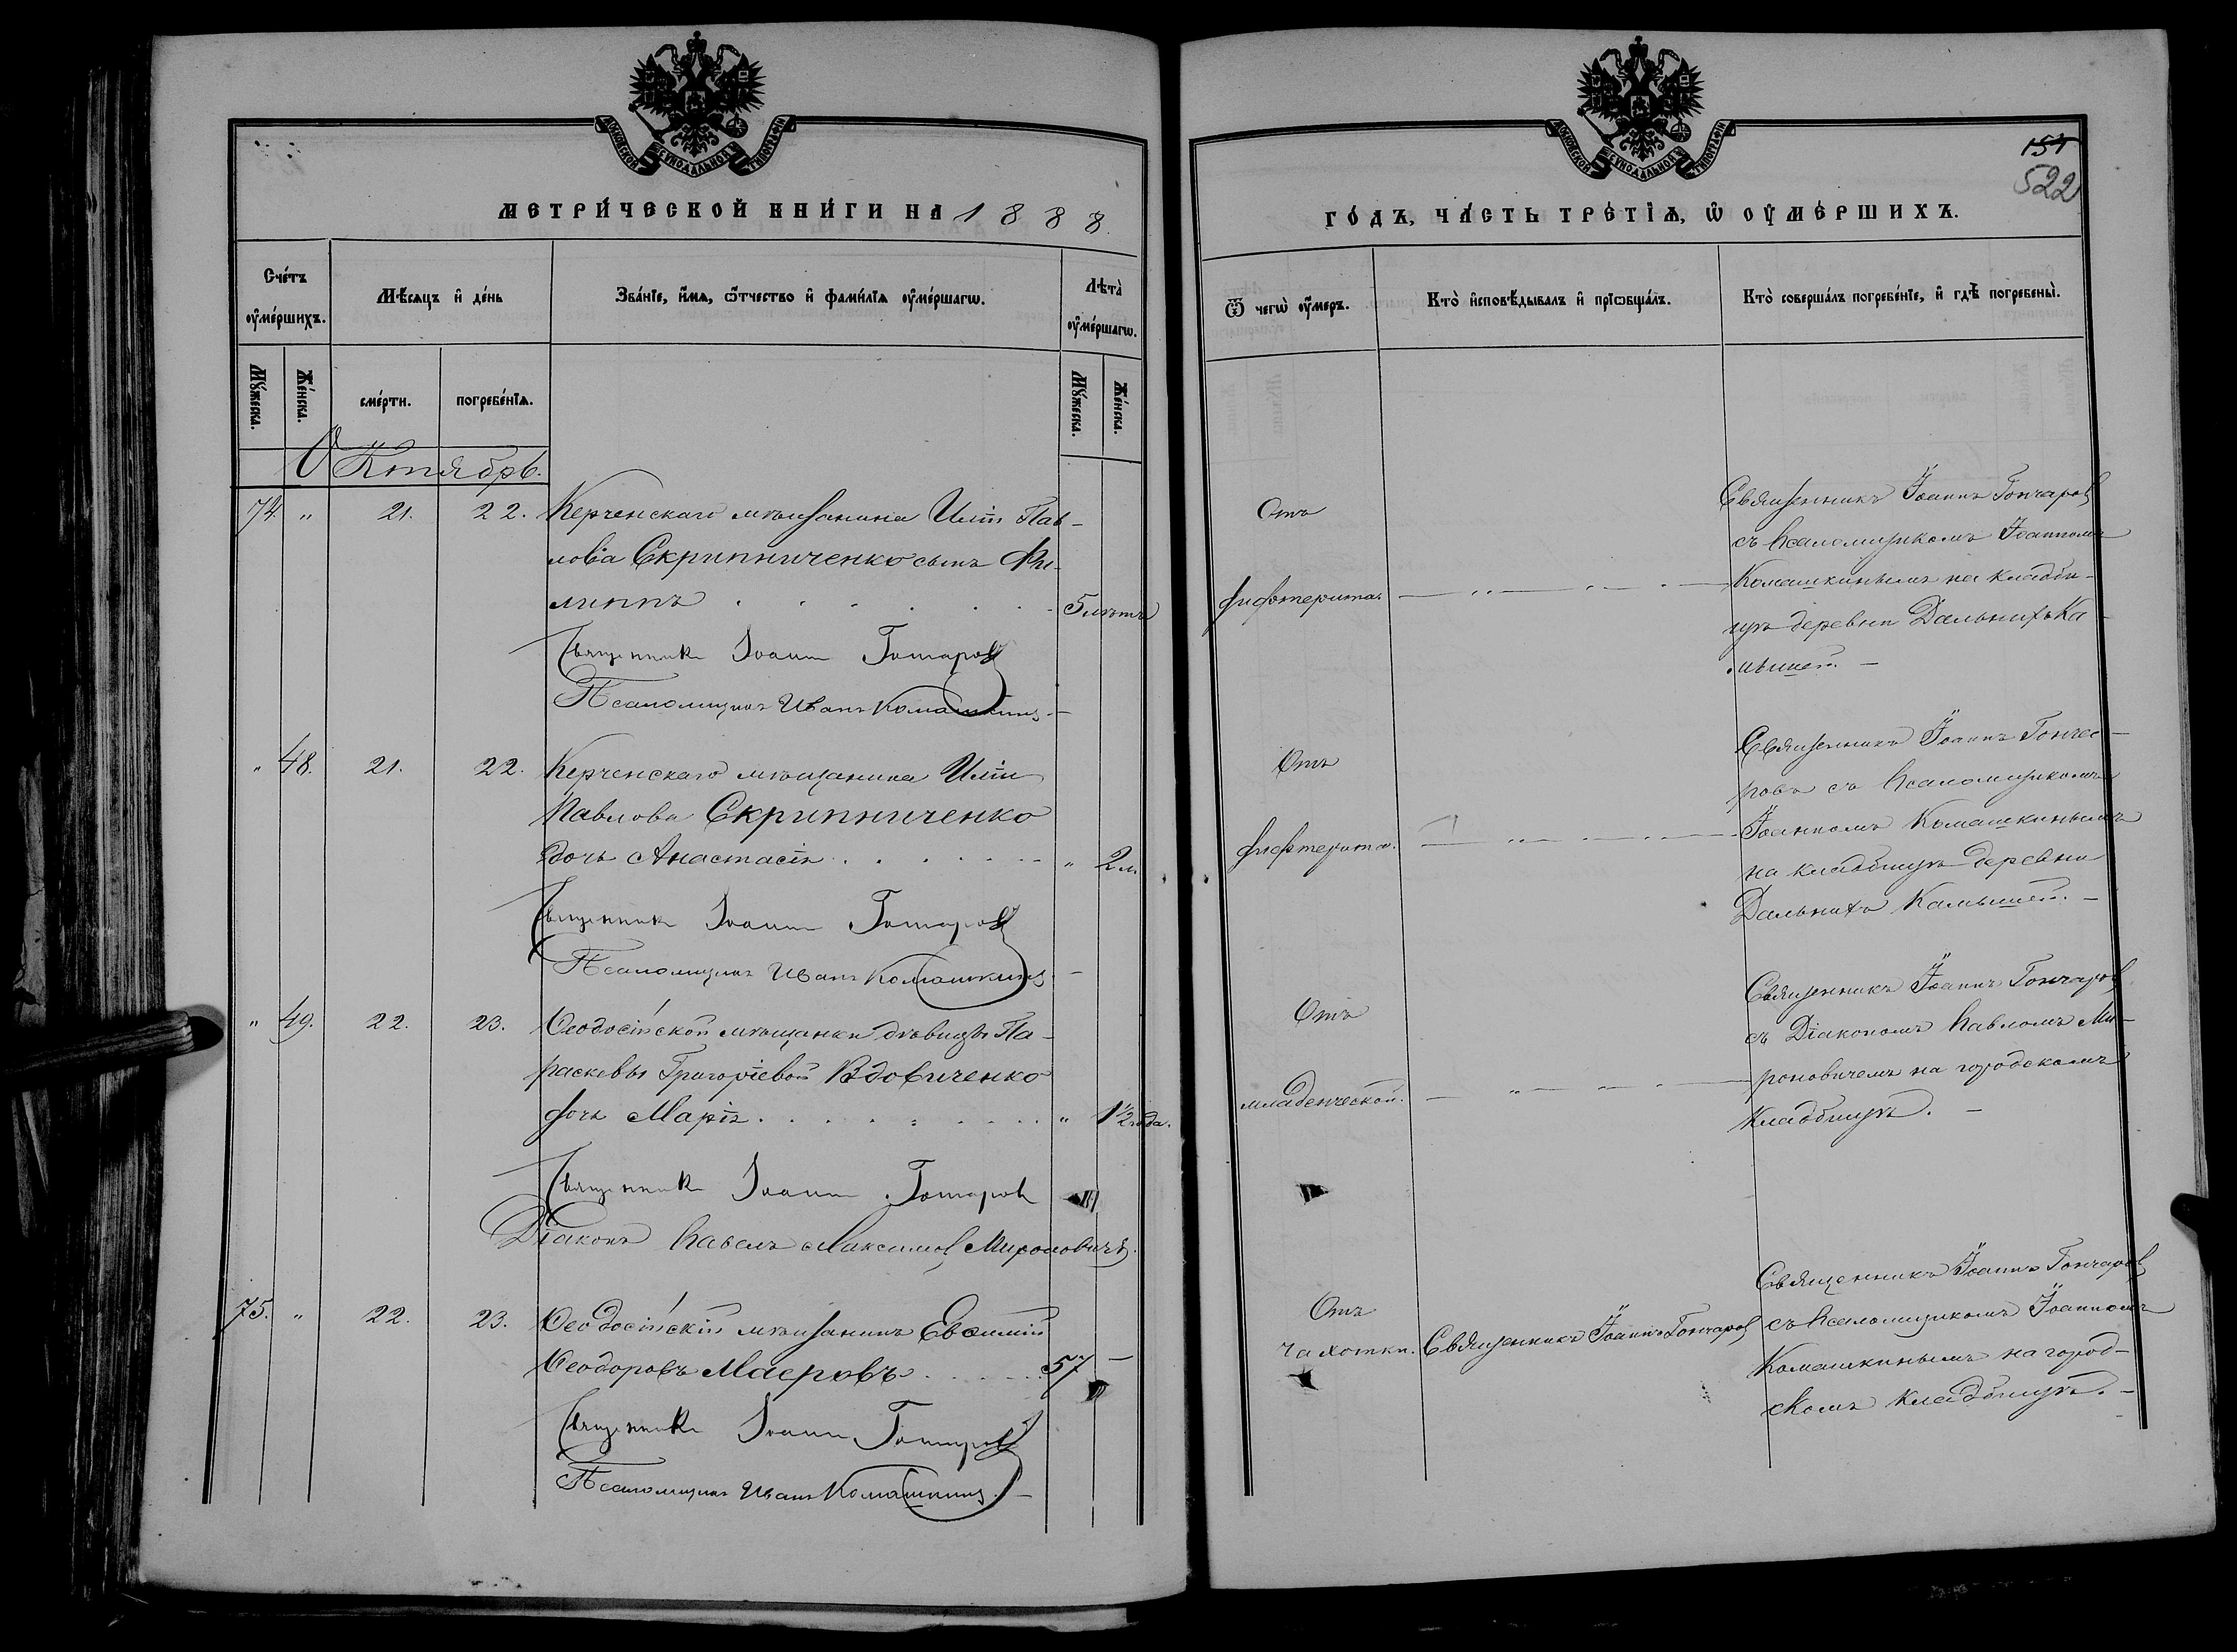 МОСКОВСКОЙ СУНОДАЛЬНОЙ ТИПОГРАФІИ
МЕТРИ́ЧЕСКОЙ КНИ́ГИ НА 1888.
Сче́тъ ᲂу҆ме́ршихъ.
Мѣ́сяцъ и҆ де́нь
Зва́нїе, и҆́мѧ, ѿтчество и҆ фами́лїѧ ᲂу҆ме́ршагѡ.
Лѣта̀ ᲂу҆ме́ршагѡ.
Мꙋ́жеска.
Же́нска.
сме́рти.
погребе́нїѧ.
Мꙋ́жеска.
Же́нска.
Октябрь.
74. " 21. 22. Керченскаго мѣщанина Иліи Пав-
лова Скрипниченко сынъ Фи-
липпъ . . . . . . 5 лѣтъ
Священникъ Іоаннъ Гончаровъ
Псаломщикъ Иванъ Комашкинъ. –
" 48. 21. 22. Керченскаго мѣщанина Иліи
Павлова Скрипниченко
дочь Анастасія . . . . . " 2 л.
Священникъ Іоаннъ Гончаровъ
Псаломщикъ Иванъ Комашкинъ. –
" 49. 22. 23. Ѳеодосійской мѣщанки дѣвицы Па-
раскевы Григоріевой Вдовиченко
дочь Марія . . . . . . " 1½ года.
Священникъ Іоаннъ Гончаровъ
Діаконъ Павелъ Максимовъ Мироновичъ.
75. " 22. 23. Ѳеодосійскій мѣщанинъ Евѳимій
Ѳеодоровъ Маеровъ . . . . . 57 –
Священникъ Іоаннъ Гончаровъ
Псаломщикъ Иванъ Комашкинъ. –
МОСКОВСКОЙ СУНОДАЛЬНОЙ ТИПОГРАФІИ
151
522
ГО́ДЪ, ЧА́СТЬ ТРЕ́ТІѦ, Ѡ҆ ОУ҆МЕ́РШИХЪ.
Ѿ чегѡ̀ ᲂу҆́меръ.
Кто̀ и҆сповѣ́дывалъ и҆ прїѡбща́лъ.
Кто̀ соверша́лъ погребе́нїе, и҆ гдѣ̀ погребены̀.
Отъ
дифтерита. — " — " — " —
Священникъ Іоаннъ Гончаровъ
съ псаломщикомъ Іоанномъ
Комашкинымъ на кладби-
щѣ деревни Дальнихъ Ка-
мышей. –
Отъ
дифтерита. — " — " — " —
Священникъ Іоаннъ Гонча-
ровъ съ псаломщикомъ
Іоанномъ Комашкинымъ
на кладбищѣ деревни
Дальнихъ Камышей. –
Отъ
младенческой. — " — " — " —
Священникъ Іоаннъ Гончаровъ
съ Діакономъ Павломъ Ми-
роновичемъ на городскомъ
кладбищѣ. –
Отъ
чахотки. Священникъ Іоаннъ Гончаровъ
Священникъ Іоаннъ Гончаровъ
съ псаломщикомъ Іоанномъ
Комашкинымъ на город-
скомъ кладбищѣ. –